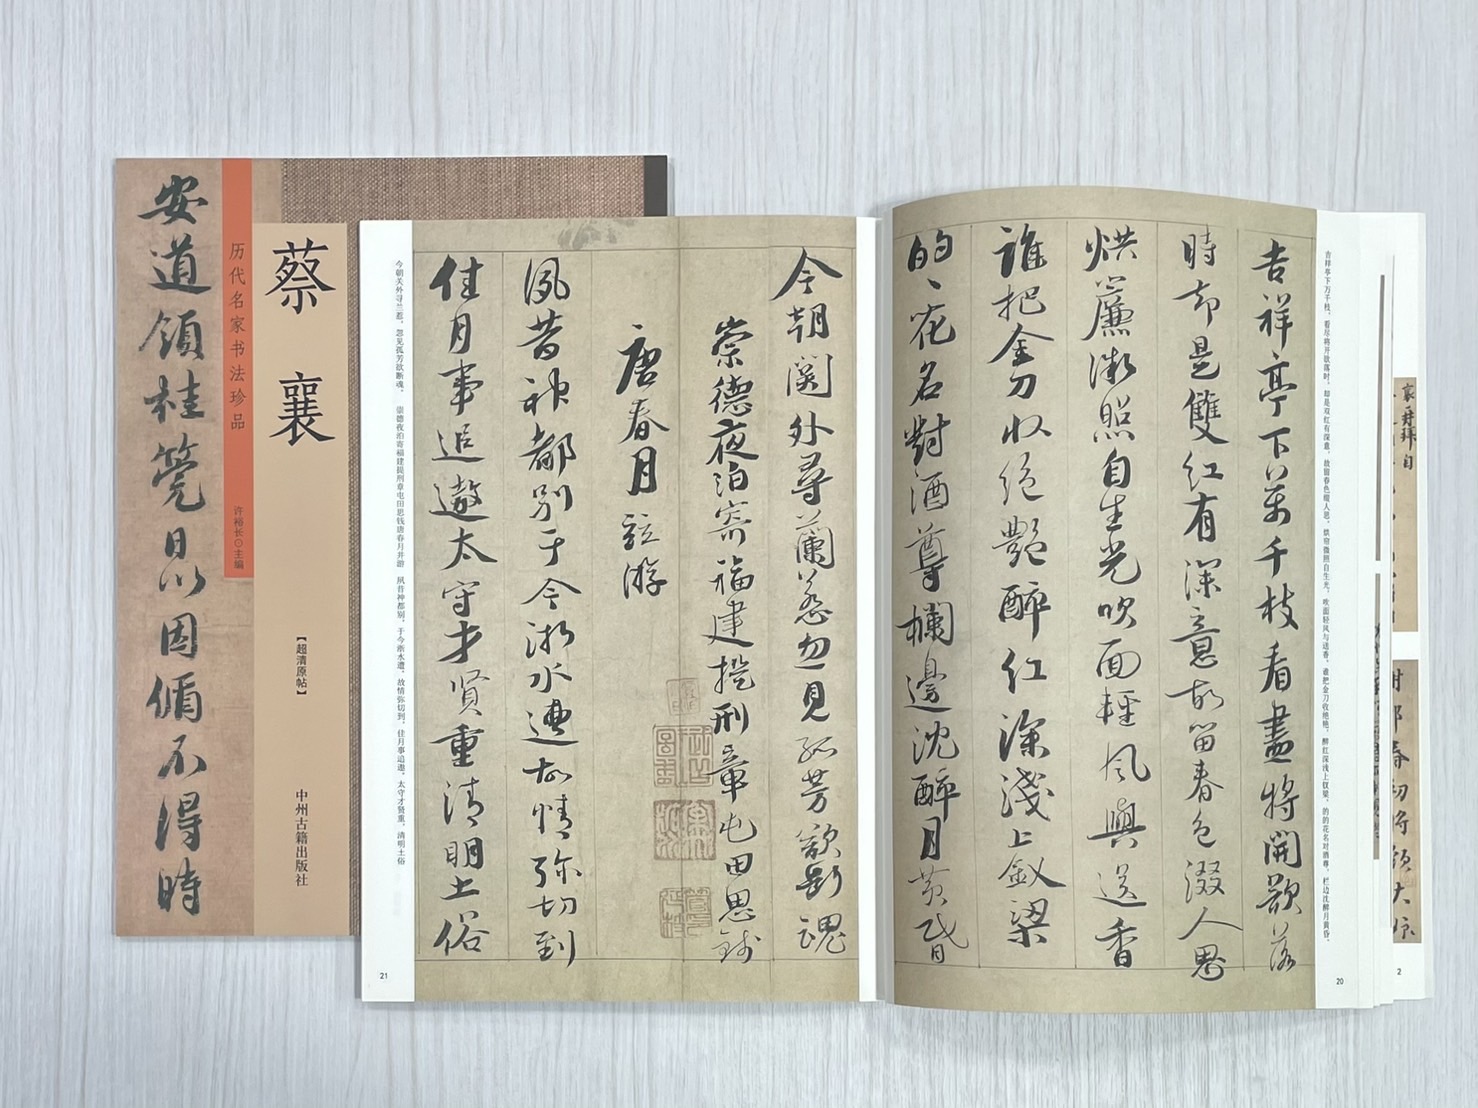 安道领桂筦昷因循不得時
历代名家书法珍品
许裕长⊙主编
蔡襄
【超清原帖】
中州古籍出版社
吉祥亭下万千枝，看尽将开欲落时。却是双红有深意，故留春色缀人思。烘帘微照自生光，吹面轻风与送香。谁把金刀收绝艳，醉红深浅上钗梁。的的花名对酒尊，栏边沈醉月黄昏。
吉祥亭下萬千枝看盡將開欲落
時却是雙紅有深意故留春色綴人思
烘簾微照自生光吹面輕風與送香
誰把金刀收絕艷醉紅深淺上釵梁
的、花名對酒尊欄邊沈醉月黄昏
20
今朝關外尋蘭惹忽見孤芳欲斷魂
崇德夜泊寄福建提刑章屯田思錢
唐春月並游
夙昔神都別于今浙水遭故情弥切到
佳月事追遨太守才賢重清明土俗
今朝关外寻兰惹，忽见孤芳欲断魂。　崇德夜泊寄福建提刑章屯田思钱唐春月并游　夙昔神都别，于今浙水遭。故情弥切到，佳月事追遨。太守才贤重，清明土俗
21
2